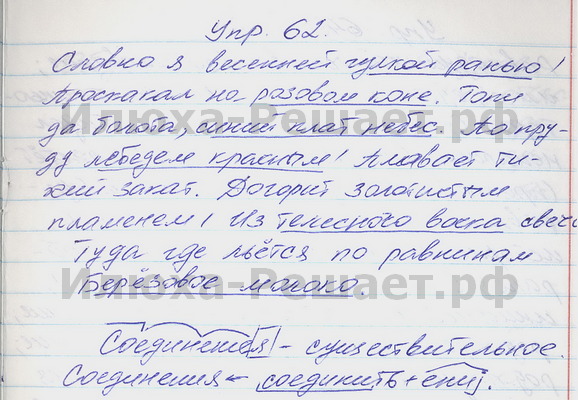 Упр. 62.
Словно я весенней гулкой ранью /
Проскакал на розовом коне. Топи
да болота, синий плат небес. По пру-
ду лебедем красным / Плавает ти-
хий закат. Догорит золотистым
пламенем / Из телесного воска свеча
Туда где льётся по равнинам
Берёзовое молоко.
Соединения - существительное.
Соединения ← соединить + ениj.
Илюха-Решает.рф
Илюха-Решает.рф